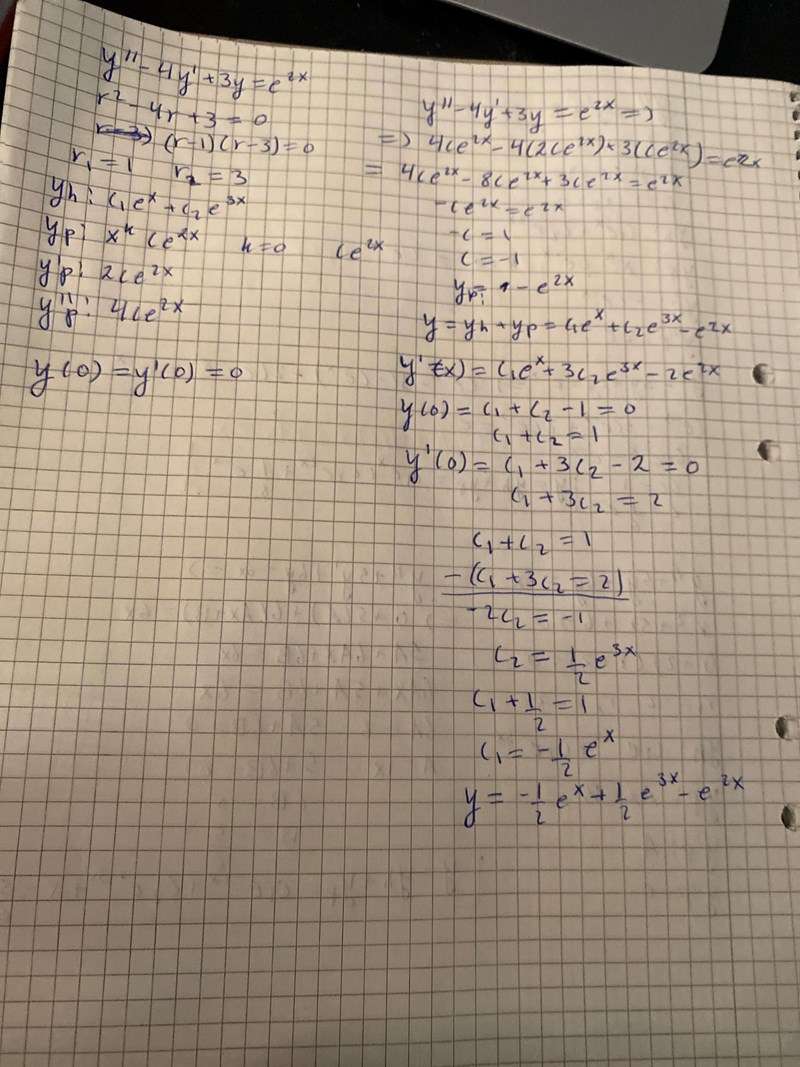 y'' - 4y' + 3y = e^{2x}
r² - 4r + 3 = 0
(r-1)(r-3) = 0
r₁ = 1 r₂ = 3
yh: c₁e^x + c₂e^{3x}
yp: x^k ce^{2x} k=0 ce^{2x}
y'p: 2ce^{2x}
y''p: 4ce^{2x}
y(0) = y'(0) = 0
y'' - 4y' + 3y = e^{2x} =>
=> 4ce^{2x} - 4(2ce^{2x}) + 3(ce^{2x}) = e^{2x}
= 4ce^{2x} - 8ce^{2x} + 3ce^{2x} = e^{2x}
-ce^{2x} = e^{2x}
-c = 1
c = -1
yp: - e^{2x}
y = yh + yp = c₁e^x + c₂e^{3x} - e^{2x}
y'(x) = c₁e^x + 3c₂e^{3x} - 2e^{2x}
y(0) = c₁ + c₂ - 1 = 0
c₁ + c₂ = 1
y'(0) = c₁ + 3c₂ - 2 = 0
c₁ + 3c₂ = 2
c₁ + c₂ = 1
-(c₁ + 3c₂ = 2)
-2c₂ = -1
c₂ = 1/2 e^{3x}
c₁ + 1/2 = 1
c₁ = -1/2 e^x
y = -1/2 e^x + 1/2 e^{3x} - e^{2x}